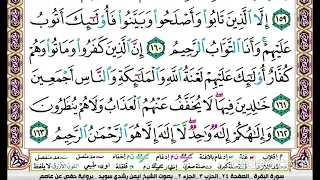 ١٥٩ إِلَّا ٱلَّذِينَ تَابُوا۟ وَأَصْلَحُوا۟ وَبَيَّنُوا۟ فَأُو۟لَـٰٓئِكَ أَتُوبُ
عَلَيْهِمْ وَأَنَا ٱلتَّوَّابُ ٱلرَّحِيمُ ١٦٠ إِنَّ ٱلَّذِينَ كَفَرُوا۟ وَمَاتُوا۟ وَهُمْ
كُفَّارٌ أُو۟لَـٰٓئِكَ عَلَيْهِمْ لَعْنَةُ ٱللَّهِ وَٱلْمَلَـٰٓئِكَةِ وَٱلنَّاسِ أَجْمَعِينَ
١٦١ خَـٰلِدِينَ فِيهَا لَا يُخَفَّفُ عَنْهُمُ ٱلْعَذَابُ وَلَا هُمْ يُنظَرُونَ
١٦٢ وَإِلَـٰهُكُمْ إِلَـٰهٌ وَٰحِدٌ لَّآ إِلَـٰهَ إِلَّا هُوَ ٱلرَّحْمَـٰنُ ٱلرَّحِيمُ ١٦٣
سورة البقرة - الصفحة ٢٤ - الحزب ٣ - الجزء ٢ - بصوت الشيخ أيمن رشدي سويد - برواية حفص عن عاصم